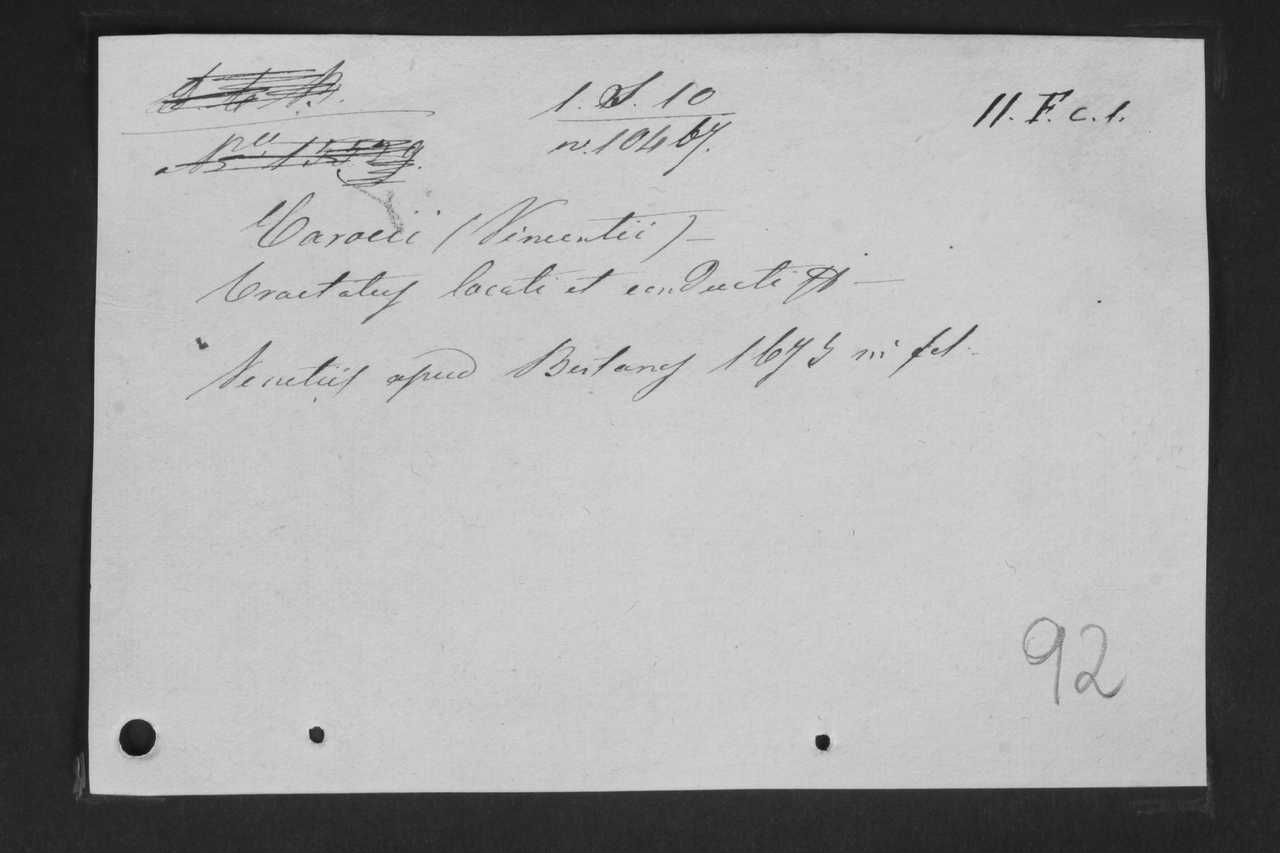 1. S. 10
n. 10467.
11. F. c. 1.
Carocii (Vincentii) —
Tractatus locati et conducti —
Venetiis apud Bertanos 1673 in fol.
92